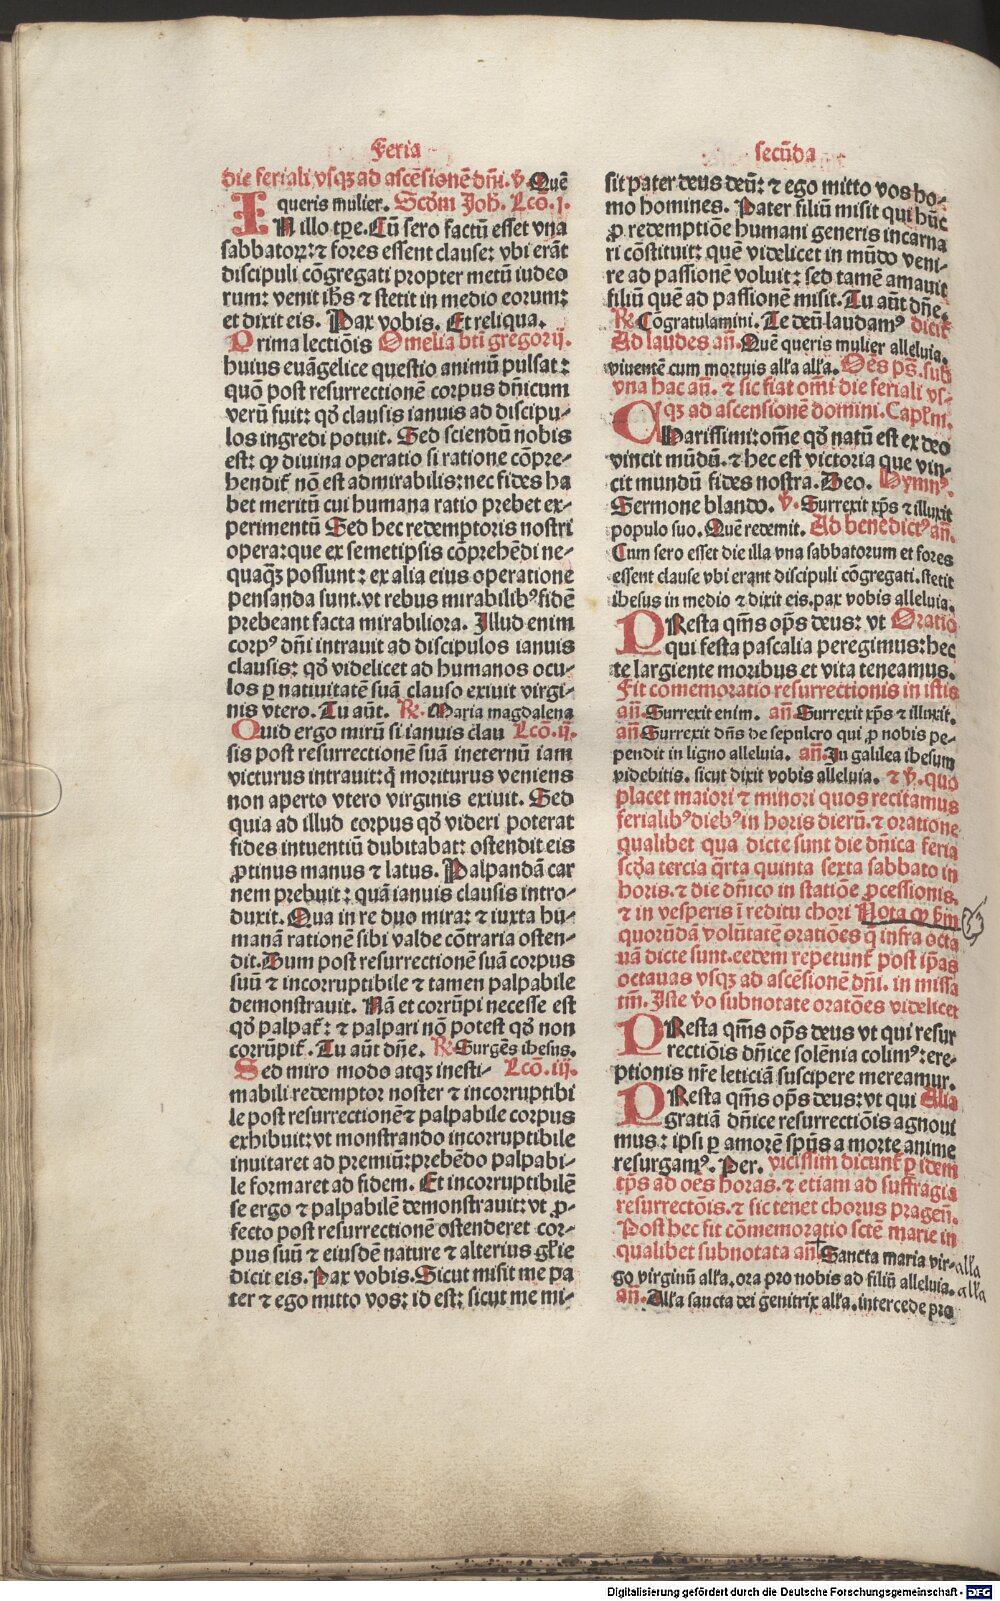 Feria
die feriali vsqꝫ ad ascēsionē dn̄i. ℣. Quē
queris mulier. Scd̄m Joh̄. Lcō. j.
IN illo tp̄e. Cū sero factū esset vna
sabbatoꝝ: ⁊ fores essent clause: vbi erāt
discipuli cōgregati propter metū iudeo
rum: venit ih̄s ⁊ stetit in medio eorum:
et dixit eis. Pax vobis. Et reliqua.
Prima lectiōis Omelia bt̄i gregorij.
huius euāgelice questio animū pulsat:
quō post resurrectionē corpus dn̄icum
verū fuit: qd̄ clausis ianuis ad discipu-
los ingredi potuit. Sed sciendū nobis
est: ꝙ diuina operatio si ratione cōpre-
hendit̄ nō est admirabilis: nec fides ha
bet meritū cui humana ratio prebet ex-
perimentū Sed hec redemptoris nostri
opera: que ex semetipsis cōprehēdi ne-
quaqꝫ possunt: ex alia eius operatione
pensanda sunt. vt rebus mirabilibꝰ fidē
prebeant facta mirabiliora. Illud enim
corpꝰ dn̄i intrauit ad discipulos ianuis
clausis: qd̄ videlicet ad humanos ocu-
los ꝑ natiuitatē suā clauso exiuit virgi-
nis vtero. Tu aūt. ℟. Maria magdalena
Quid ergo mirū si ianuis clau Lcō. ij.
sis post resurrectionē suā ineternū iam
victurus intrauit: q̄ moriturus veniens
non aperto vtero virginis exiuit. Sed
quia ad illud corpus qd̄ videri poterat
fides intuentiū dubitabat: ostendit eis
ꝓtinus manus ⁊ latus. Palpandā car
nem prebuit: quā ianuis clausis intro-
duxit. Qua in re duo mira: ⁊ iuxta hu-
manā rationē sibi valde cōtraria osten-
dit. Dum post resurrectionē suā corpus
suū ⁊ incorruptibile ⁊ tamen palpabile
demonstrauit. Nā et corrūpi necesse est
qd̄ palpat̄: ⁊ palpari nō potest qd̄ non
corrūpit̄. Tu aūt dn̄e. ℟. Surgēs ihesus.
Sed miro modo atqꝫ inesti- Lcō. iij.
mabili redemptor noster ⁊ incorruptibi
le post resurrectionē ⁊ palpabile corpus
exhibuit: vt monstrando incorruptibile
inuitaret ad premiū: prebēdo palpabi-
le formaret ad fidem. Et incorruptibilē
se ergo ⁊ palpabilē demonstrauit: vt ꝓ-
fecto post resurrectionē ostenderet cor-
pus suū ⁊ eiusdē nature ⁊ alterius gl̄ie
dicit eis. Pax vobis. Sicut misit me pa
ter ⁊ ego mitto vos: id est: sicut me mi-
secūda
sit pater deus deū: ⁊ ego mitto vos ho-
mo homines. Pater filiū misit qui hūc
ꝓ redemptiōe humani generis incarna
ri cōstituit: quē videlicet in mūdo veni-
re ad passionē voluit: sed tamē amauit
filiū quē ad passionē misit. Tu aūt dn̄e.
℟. Cōgratulamini. Te deū laudamꝰ dicit̄
Ad laudes an̄. Quē queris mulier alleluia.
viuentē cum mortuis all̄a all̄a. Oēs ps̄. sub
vna hac an̄. ⁊ sic fiat om̄i die feriali vs-
qꝫ ad ascensionē domini. Capl̄m.
CHarissimi: om̄e qd̄ natū est ex deo
vincit mūdū. ⁊ hec est victoria que vin-
cit mundū fides nostra. Deo. Hymnꝰ.
Sermone blando. ℣. Surrexit xp̄s ⁊ illuxit
populo suo. Quē redemit. Ad benedictꝰ an̄.
Cum sero esset die illa vna sabbatorum et fores
essent clause vbi erant discipuli cōgregati. stetit
ihesus in medio ⁊ dixit eis. pax vobis alleluia.
PResta qm̄s op̄s deus: vt Oratio
qui festa pascalia peregimus: hec
te largiente moribus et vita teneamus.
Fit comemoratio resurrectionis in istis
an̄. Surrexit enim. an̄. Surrexit xp̄s ⁊ illuxit.
an̄. Surrexit dn̄s de sepulcro qui ꝓ nobis pe-
pendit in ligno alleluia. an̄. In galilea ihesum
videbitis. sicut dixit vobis alleluia. ⁊ ℣. quo
placet maiori ⁊ minori quos recitamus
ferialibꝰ diebꝰ in horis dierū. ⁊ oratione
qualibet qua dicte sunt die dn̄ica feria
scd̄a tercia q̄rta quinta sexta sabbato in
horis. ⁊ die dn̄ico in statiōe ꝓcessionis.
⁊ in vesperis ī reditu chori Nota ꝙ s̄m
quorūdā volūtatē oratiōes q̄ infra octa
uā dicte sunt. eedem repetunt̄ post ip̄as
octauas vsqꝫ ad ascēsionē dn̄i. in missa
tm̄. Iste v̄o subnotate oratōes videlicet
PResta qm̄s op̄s deus vt qui resur
rectiōis dn̄ice solēnia colimꝰ: ere-
ptionis nr̄e leticiā suscipere mereamur.
PResta qm̄s op̄s deus: vt qui Alia
gratiā dn̄ice resurrectiōis agnoui
mus: ipsi ꝑ amorē sp̄us a morte anime
resurgamꝰ. Per. vicissim dicunt̄ ꝑ idem
tp̄s ad oēs horas. ⁊ etiam ad suffragia
resurrectōis. ⁊ sic tenet chorus pragen̄.
Post hec fit cōmemoratio sctē marie in
qualibet subnotata an̄ † Sancta maria vir- all̄a
go virginū all̄a. ora pro nobis ad filiū alleluia. all̄a
an̄. All̄a sancta dei genitrix all̄a. intercede pro
Digitalisierung gefördert durch die Deutsche Forschungsgemeinschaft - DFG